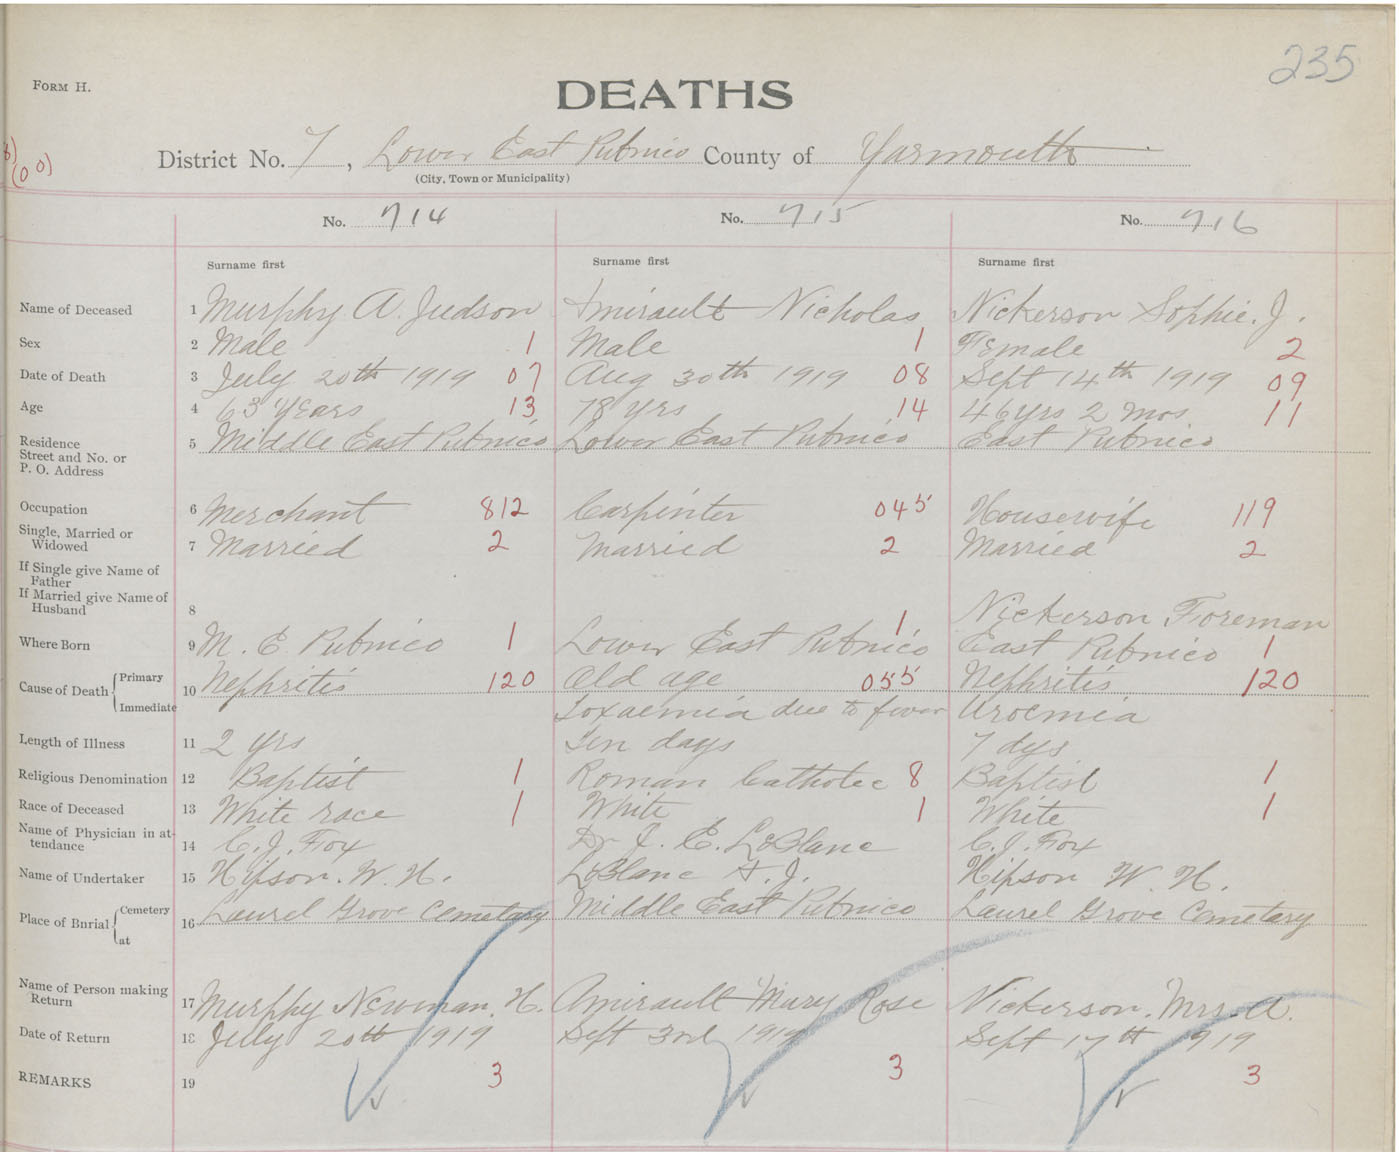 235
FORM H.
DEATHS
8)
(00)
District No. 7, Lower East Pubnico County of Yarmouth
(City, Town or Municipality)
No. 714 No. 715 No. 716
Surname first Surname first Surname first
Name of Deceased 1 Murphy A. Judson Amirault Nicholas Nickerson Sophie. J.
Sex 2 Male 1 Male 1 Female 2
Date of Death 3 July 20th 1919 07 Aug 30th 1919 08 Sept 14th 1919 09
Age 4 63 years 13 78 yrs 14 46 yrs 2 mos 11
Residence 5 Middle East Pubnico Lower East Pubnico East Pubnico
Street and No. or
P. O. Address
Occupation 6 Merchant 812 Carpinter 045 Housewife 119
Single, Married or
Widowed 7 Married 2 Married 2 Married 2
If Single give Name of
Father
If Married give Name of
Husband 8 Nickerson Foreman
Where Born 9 M. E. Pubnico 1 Lower East Pubnico 1 East Pubnico 1
Cause of Death Primary 10 Nephritis 120 Old age 055 Nephritis 120
Immediate Toxaemia due to fever Uroemia
Length of Illness 11 2 yrs Ten days 7 dys
Religious Denomination 12 Baptist 1 Roman Catholec 8 Baptist 1
Race of Deceased 13 White race 1 White 1 White 1
Name of Physician in at-
tendance 14 C. J. Fox Dr J. E. LeBlanc C. J. Fox
Name of Undertaker 15 Hipson. W. H. LeBlanc A. J. Hipson W. H.
Place of Burial Cemetery 16 Laurel Grove Cemetary Middle East Pubnico Laurel Grove Cemetary
at
Name of Person making
Return 17 Murphy Newman. H. Amirault Mary Rose Nickerson. Mrs. A.
Date of Return 18 July 20th 1919 Sept 3rd 1919 Sept 17th 1919
REMARKS 19 3 3 3